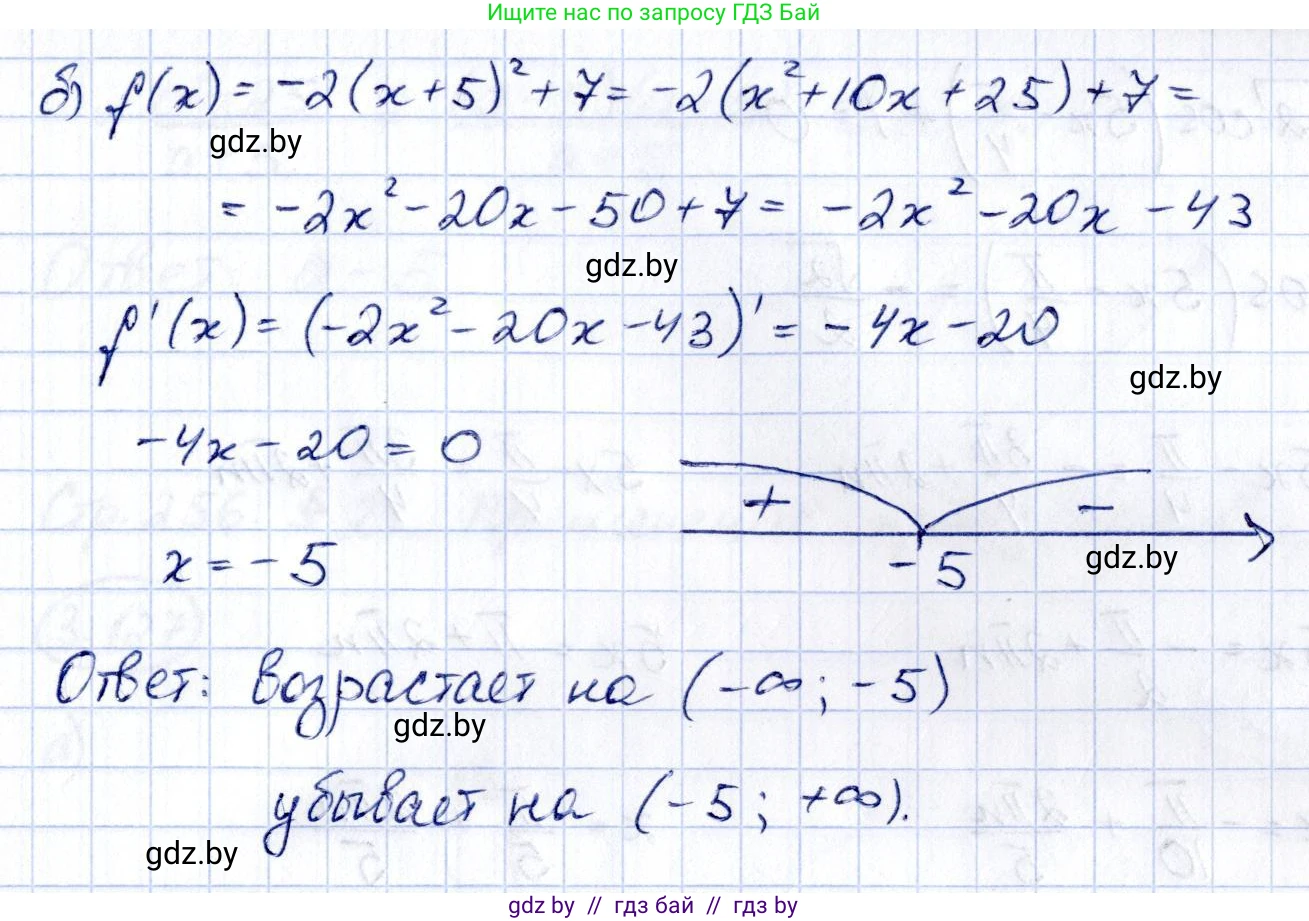 Ищите нас по запросу ГДЗ Бай
б) f(x) = -2(x+5)² + 7 = -2(x² + 10x + 25) + 7 =
gdz.by
= -2x² - 20x - 50 + 7 = -2x² - 20x - 43
gdz.by
f'(x) = (-2x² - 20x - 43)' = -4x - 20
gdz.by
-4x - 20 = 0
+ -
x = -5
-5
gdz.by
Ответ: возрастает на (-∞; -5)
gdz.by
убывает на (-5; +∞).
gdz.by
gdz by // гдз бай // gdz by